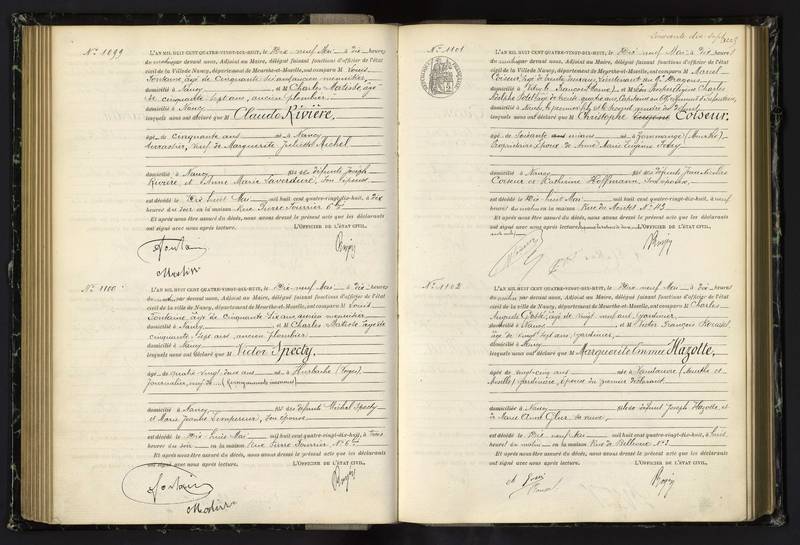 N° 1099
L'AN MIL HUIT CENT QUATRE-VINGT-DIX-HUIT, le Dix neuf Mai à Dix heures
du matin par devant nous, Adjoint au Maire, délégué faisant fonctions d'officier de l'état
civil de la Ville de Nancy, département de Meurthe-et-Moselle, ont comparu M Louis
Fontaine âgé de Cinquante six ans ancien menuisier,
domicilié à Nancy et M Charles Matiste, âgé
de cinquante sept ans, ancien plombier
domicilié à Nancy
lesquels nous ont déclaré que M Claude Rivière,
âgé de Cinquante ans né à Nancy
terrassier, veuf de Marguerite Juliette Michel
domicilié à Nancy fils des défunts Joseph
Rivière et Anne Marie Laverdure, son épouse
est décédé le Dix huit Mai mil huit cent quatre-vingt-dix-huit, à Dix
heures du soir en la maison Rue Pierre Fourrier 6
Et après nous être assuré du décès, nous avons dressé le présent acte que les déclarants
ont signé avec nous après lecture. L'OFFICIER DE L'ÉTAT CIVIL,
Fontain
N° 1100
L'AN MIL HUIT CENT QUATRE-VINGT-DIX-HUIT, le Dix neuf Mai à Dix heures
du matin par devant nous, Adjoint au Maire, délégué faisant fonctions d'officier de l'état
civil de la Ville de Nancy, département de Meurthe-et-Moselle, ont comparu M Louis
Fontaine âgé de cinquante six ans ancien menuisier
domicilié à Nancy et M Charles Matiste âgé de
cinquante sept ans ancien plombier
domicilié à Nancy
lesquels nous ont déclaré que M Victor Specty,
âgé de quatre vingt deux ans né à Hurbache (Vosges)
journalier, veuf de (renseignements inconnus)
domicilié à Nancy fils des défunts Michel Specty
et Marie Jeanne Lempereur, son épouse
est décédé le Dix huit Mai mil huit cent quatre-vingt-dix-huit, à trois
heures du soir en la maison Rue Pierre Fourrier N° 6
Et après nous être assuré du décès, nous avons dressé le présent acte que les déclarants
ont signé avec nous après lecture. L'OFFICIER DE L'ÉTAT CIVIL,
Fontain
N° 1101
L'AN MIL HUIT CENT QUATRE-VINGT-DIX-HUIT, le Dix neuf Mai à Dix heures
du matin par devant nous, Adjoint au Maire, délégué faisant fonctions d'officier de l'état
civil de la Ville de Nancy, département de Meurthe-et-Moselle, ont comparu M Marcel
Coiseur, âgé de trente ans, Lieutenant au Dragons
domicilié à Vitry le François (Marne) et M Charles
domicilié à
lesquels nous ont déclaré que M Christophe Coiseur,
âgé de Soixante ans né à Hommange (Meurthe)
Propriétaire, Epoux de Anne Marie Eugénie
domicilié à Nancy fils des défunts Jean Nicolas
Coiseur et Catherine Hoffmann, son épouse,
est décédé le Dix huit Mai mil huit cent quatre-vingt-dix-huit, à neuf
heures du matin en la maison Rue de Montet N° 113
Et après nous être assuré du décès, nous avons dressé le présent acte que les déclarants
ont signé avec nous après lecture. L'OFFICIER DE L'ÉTAT CIVIL,
N° 1102
L'AN MIL HUIT CENT QUATRE-VINGT-DIX-HUIT, le Dix neuf Mai à Dix heures
du matin par devant nous, Adjoint au Maire, délégué faisant fonctions d'officier de l'état
civil de la Ville de Nancy, département de Meurthe-et-Moselle, ont comparu M Charles
Auguste âgé de vingt neuf ans, jardinier,
domicilié à Nancy et M Victor François
âgé de vingt sept ans, jardinier,
domicilié à Nancy
lesquels nous ont déclaré que M Marguerite Emma Hazotte,
âgée de vingt cinq ans née à (Meurthe et
Moselle) jardinière, épouse du premier déclarant
domiciliée à Nancy fille de défunt Joseph Hazotte, et
de Marie Anne sa veuve,
est décédée le Dix neuf Mai mil huit cent quatre-vingt-dix-huit, à huit
heures du matin en la maison Rue de Bellevue N° 2
Et après nous être assuré du décès, nous avons dressé le présent acte que les déclarants
ont signé avec nous après lecture. L'OFFICIER DE L'ÉTAT CIVIL,